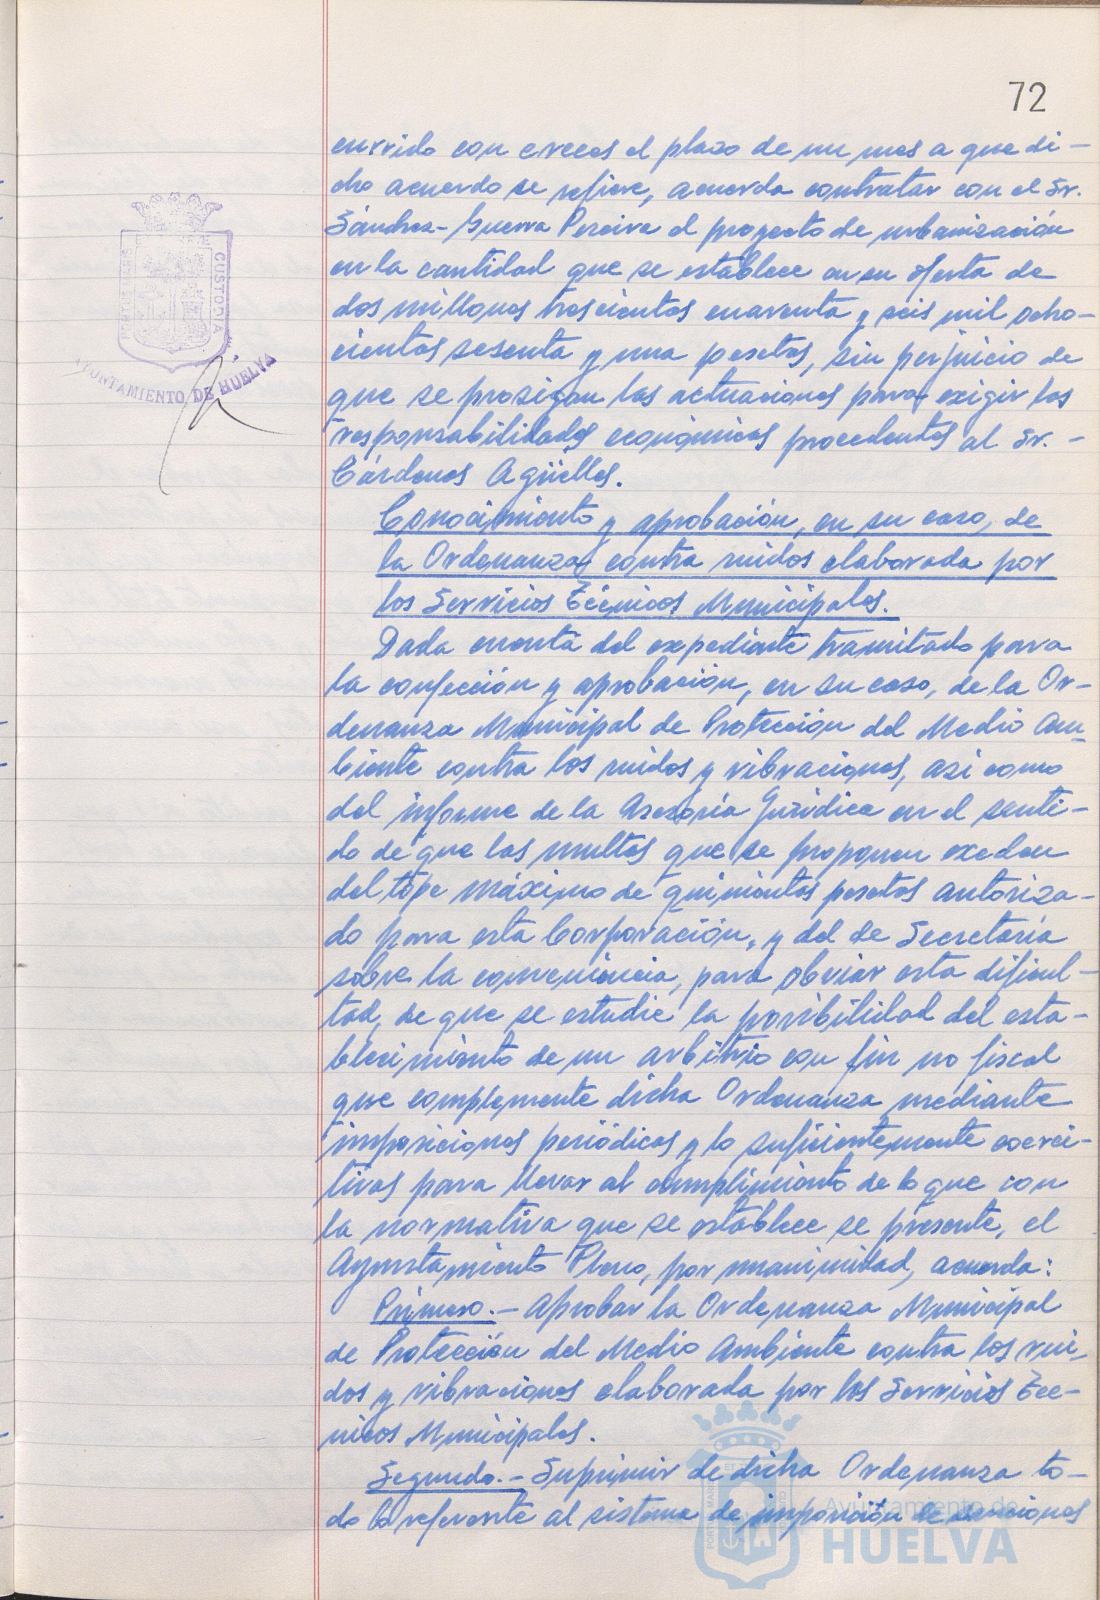 72
currido con creces el plazo de un mes a que di-
cho acuerdo se refiere, acuerda contratar con el Sr.
Sánchez-Guerra Pereira el proyecto de urbanización
en la cantidad que se establece en su oferta de
dos millones trescientas cuarenta y seis mil ocho-
cientas sesenta y una pesetas, sin perjuicio de
que se prosigan las actuaciones para exigir las
responsabilidades económicas procedentes al Sr. -
Cárdenas Agüelles.
Conocimiento y aprobación, en su caso, de
la Ordenanza contra ruidos elaborada por
los Servicios Técnicos Municipales.
Dada cuenta del expediente tramitado para
la confección y aprobación, en su caso, de la Or-
denanza Municipal de Protección del Medio Am-
biente contra los ruidos y vibraciones, asi como
del informe de la Asesoría Jurídica en el senti-
do de que las multas que se proponen exceden
del tope máximo de quinientas pesetas autoriza-
do para esta Corporación, y del de Secretaría
sobre la conveniencia, para obviar esta dificul-
tad, de que se estudie la posibilidad del esta-
blecimiento de un arbitrio con fin no fiscal
que complemente dicha Ordenanza mediante
imposiciones periódicas y lo suficientemente coerci-
tivas para llevar al cumplimiento de lo que con
la normativa que se establece se presente, el
Ayuntamiento Pleno, por unanimidad, acuerda:
Primero.- Aprobar la Ordenanza Municipal
de Protección del Medio Ambiente contra los rui-
dos y vibraciones elaborada por los Servicios Téc-
nicos Municipales.
Segundo.- Suprimir de dicha Ordenanza to-
do lo referente al sistema de imposición de sanciones
CUSTODIA
AYUNTAMIENTO DE HUELVA
Ayuntamiento de
HUELVA